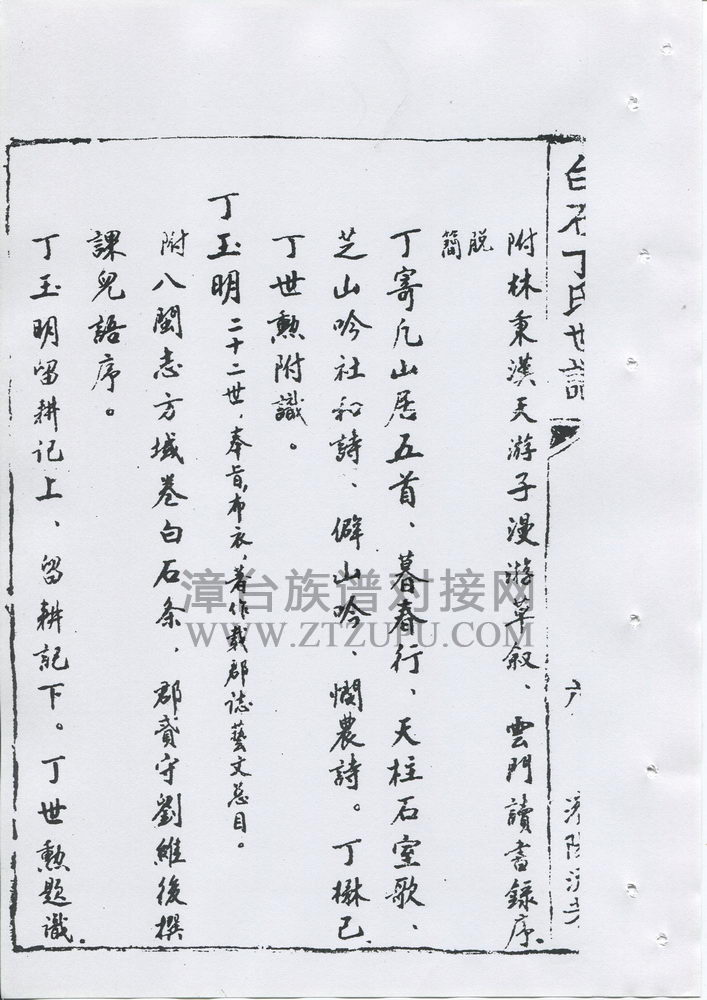 白石丁氏世譜
六
附林秉漢天游子漫游草叙、雲門讀書錄序。
脱簡
丁寄凡山居五首、暮春行、天柱石室歌、
芝山吟社和詩、僻山吟、憫農詩。丁楙已
丁世勲附識。
丁玉明二十二世，奉旨布衣，著作載郡誌藝文总目。
附八閩志方域卷白石条，郡賁守劉維後撰
課兒語序。
丁玉明留耕记上、留耕記下。丁世勲题識.
漳台族谱对接网
WWW.ZTZUPU.COM